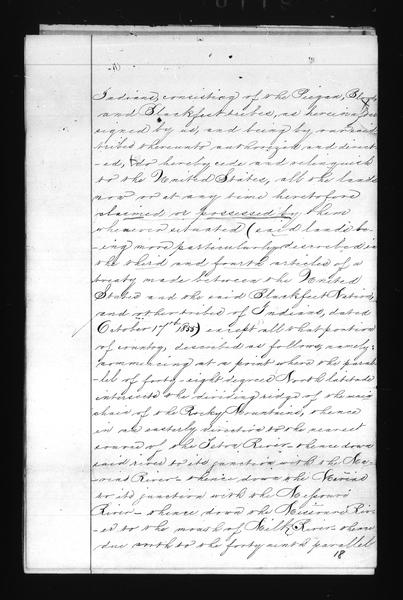 Indians, consisting of the Piegan, Blood
and Blackfeet tribes, as hereinafter
signed by us, and being by our said
tribes thereunto authorized and direct-
ed, do hereby cede and relinquish
to the United States, all the lands
now or at any time heretofore
claimed or possessed by them
wherever situated (said lands be-
ing more particularly described in
the third and fourth articles of a
treaty made between the United
States and the said Blackfeet Nation,
and other tribes of Indians, dated
October 17th 1855) except all that portion
of country, described as follows, namely:
Commencing at a point where the paral-
lel of forty-eight degrees North latitude
intersects the dividing ridge of the main
chain of the Rocky Mountains, thence
in an easterly direction to the nearest
source of the Teton River - thence down
said river to its junction with the Ma-
rias River - thence down the Marias
to its junction with the Missouri
River - thence down the Missouri Riv-
er to the mouth of Milk River - thence
due north to the forty ninth parallel
18